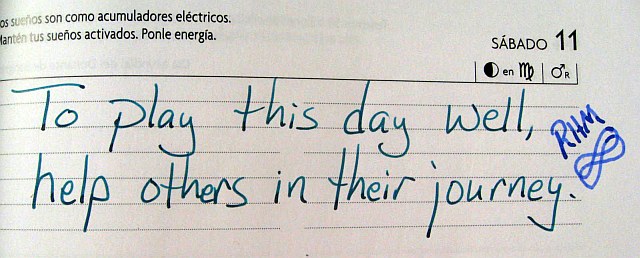 os sueños son como acumuladores eléctricos.
Mantén tus sueños activados. Ponle energía.
SÁBADO 11
en ♍ ♂R
To play this day well,
RHM
help others in their journey.